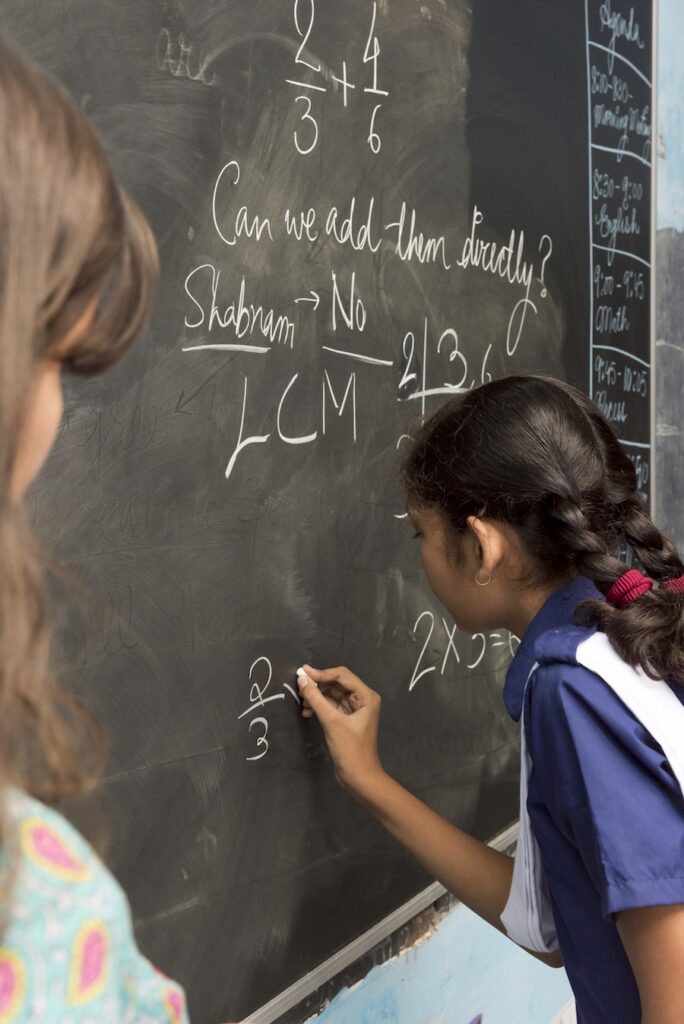 2/3 + 4/6
Can we add them directly?
Shabnam → No
LCM
2 | 3, 6
2 x 3 =
2/3
Agenda
8:10-8:30-
Morning Meeting
8:30-9:00
English
9:00-9:45
Math
9:45-10:05
Recess